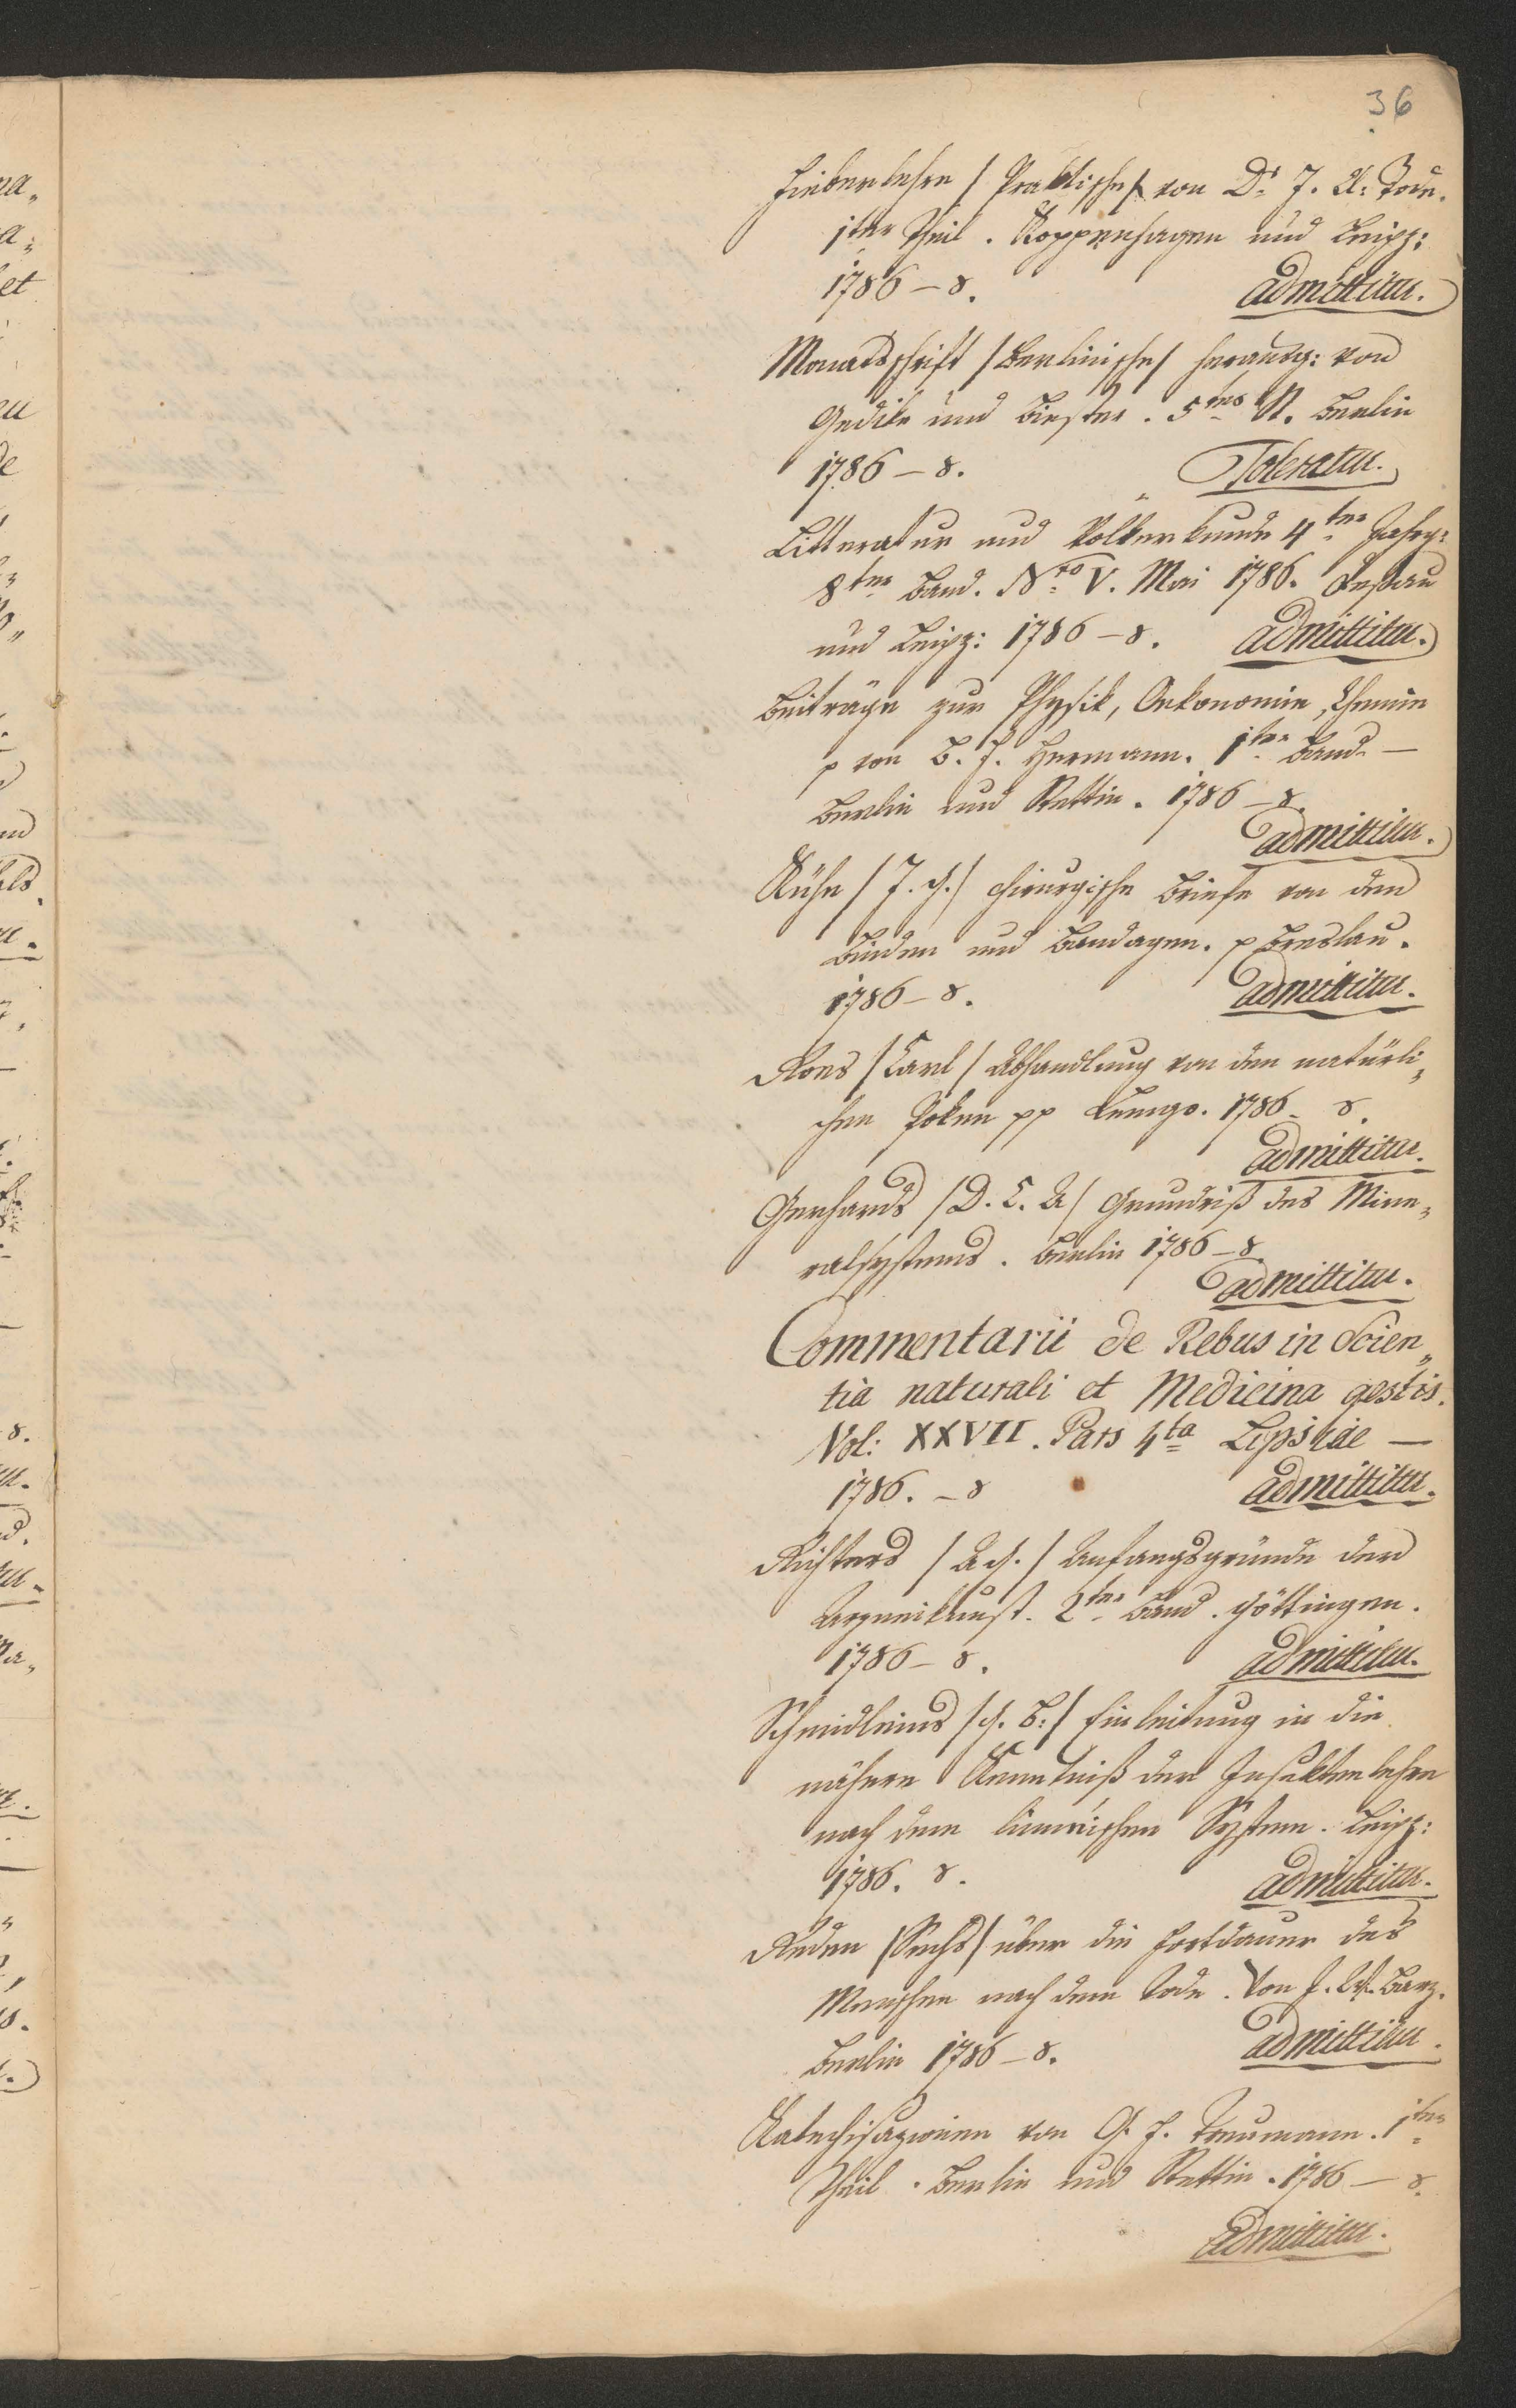 36
Fieberlehre /Praktische/ von Dr J. C. Tode.
1ter Theil. Koppenhagen und Leipz:
1786 – 8. admittitur.
Monatsschrift /Berlinische/ herausg: von
Gedike und Biester. 5tes St. Berlin
1786 – 8. Toleratur.
Litteratur und Völkerkunde 4ter Jahrg:
8ter Band. Nro V. Mai 1786. Dessau
und Leipz: 1786 – 8. admittitur.
Beiträge zur Physik, Oekonomie, Chemie
p von B. F. Hermann. 1ter Band –
Berlin und Stettin. 1786 – 8.
admittitur.
Kühn /J. G./ chirurgische Briefe von den
Binden und Bandagen. p Breslau.
1786 – 8. admittitur.
Roes /Carl/ Abhandlung von den natürli„
chen Poken pp Lemgo. 1786 – 8.
admittitur.
Gerhards /D. C. A/ Grundriß des Mine„
ralsystems. Berlin 1786 – 8.
admittitur.
Commentarii de Rebus in Scien„
tia naturali et Medicina gestis.
Vol: XXVII. Pars 4ta Lipsiae –
1786. – 8 admittitur.
Richters /A. G./ Anfangsgründe der
Arzneikunst. 2ter Band. Göttingen.
1786 – 8. admittitur.
Schmidleins /G. B:/ Einleitung in die
nähere Kenntniß der Insektenlehre
nach dem linneischen System. Leipz:
1786. 8. admittitur.
Reden /Sechs/ über die Fortdauer des
Menschen nach dem Tode. Von
Berlin 1786 – 8. admittitur.
Katechisazionen von G. F. Treumann. 1ter
Theil. Berlin und Stettin. 1786 – 8.
admittitur.